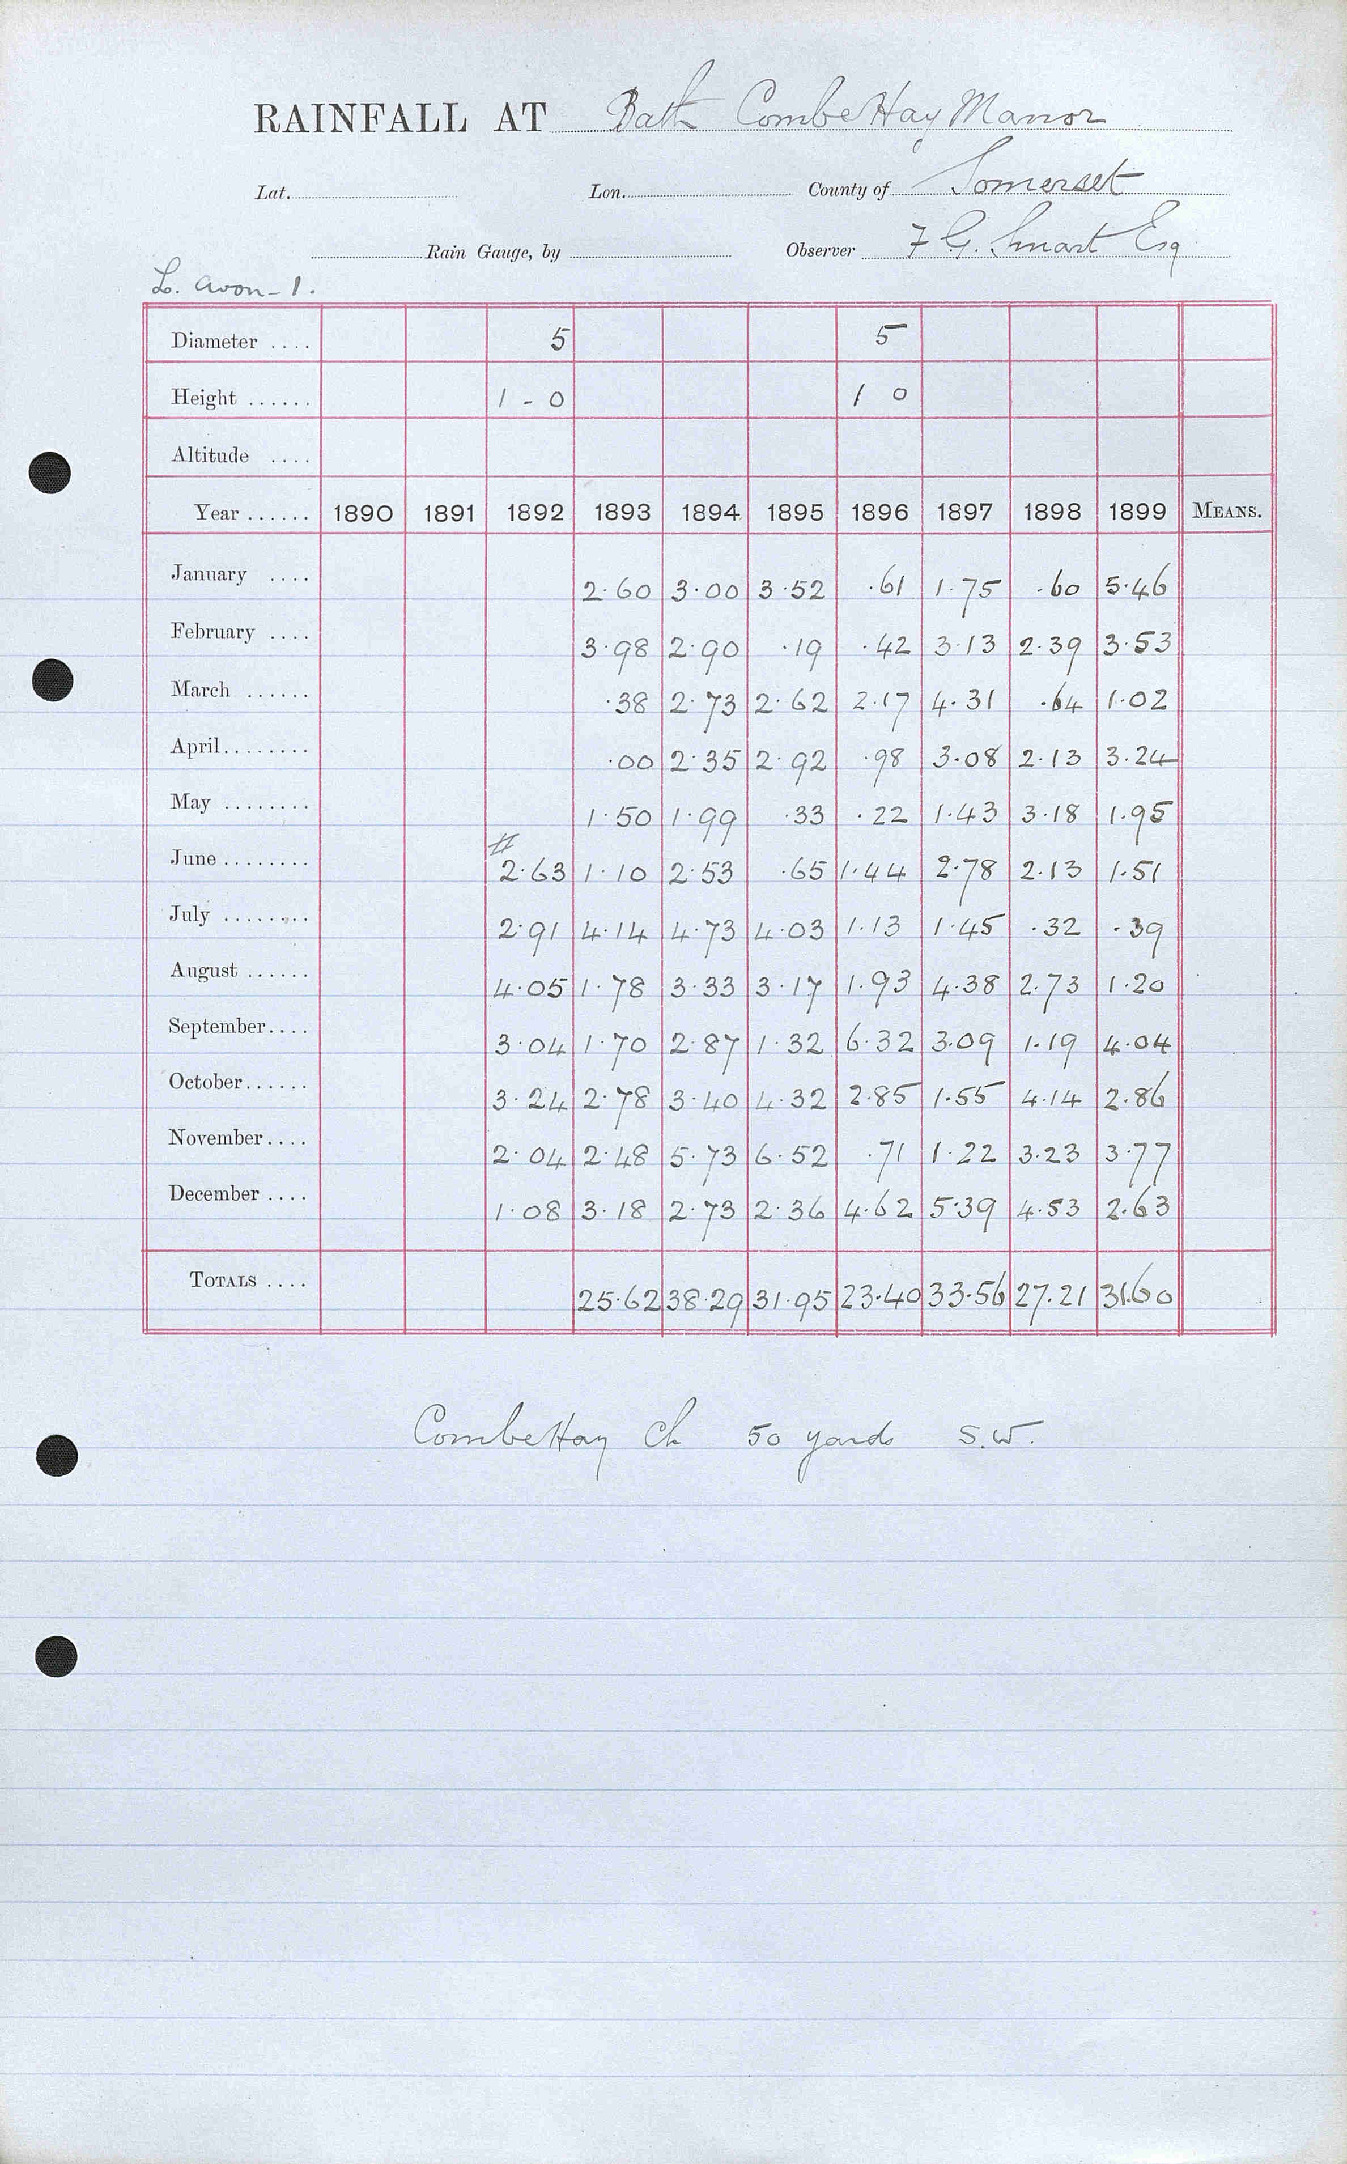 RAINFALL AT Bath Combe Hay Manor
Lat. Lon. County of Somerset
Rain Gauge, by Observer F G. Smart Esq
L. Avon - 1.
Diameter .... 5 5
Height ...... 1 - 0 1 0
Altitude ....
Year ...... 1890 1891 1892 1893 1894 1895 1896 1897 1898 1899 MEANS.
January .... 2.60 3.00 3.52 .61 1.75 .60 5.46
February .... 3.98 2.90 .19 .42 3.13 2.39 3.53
March ...... .38 2.73 2.62 2.17 4.31 .64 1.02
April ........ .00 2.35 2.92 .98 3.08 2.13 3.24
May ........ 1.50 1.99 .33 .22 1.43 3.18 1.95
June ........ # 2.63 1.10 2.53 .65 1.44 2.78 2.13 1.51
July ........ 2.91 4.14 4.73 4.03 1.13 1.45 .32 .39
August ...... 4.05 1.78 3.33 3.17 1.93 4.38 2.73 1.20
September.... 3.04 1.70 2.87 1.32 6.32 3.09 1.19 4.04
October...... 3.24 2.78 3.40 4.32 2.85 1.55 4.14 2.86
November.... 2.04 2.48 5.73 6.52 .71 1.22 3.23 3.77
December .... 1.08 3.18 2.73 2.36 4.62 5.39 4.53 2.63
TOTALS .... 25.62 38.29 31.95 23.40 33.56 27.21 31.60
Combe Hay Ch 50 yards S.W.